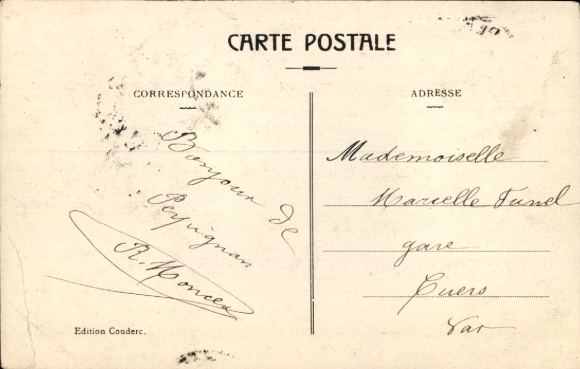 CARTE POSTALE
CORRESPONDANCE
ADRESSE
Bonjour de
Perpignan
Mademoiselle
Marcelle Funel
gare
Cuers
Var
Edition Couderc.